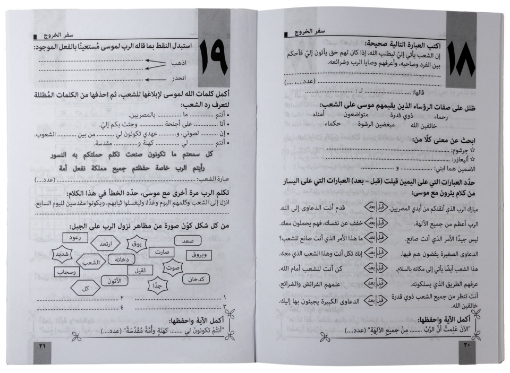 سفر الخروج
١٨
اكتب العبارة التالية صحيحة:
إن الشعب يأتي إليّ ليطلب الله، إذا كان لهم حق يأتون إليّ فأحكم
بين الفرد وصاحبه، وأعرفهم وصايا الرب وشرائعه.
(عدد...)
قالها: لـ:
ظلل على صفات الرؤساء الذين يقيمهم موسى على الشعب:
رحماء ذوي قدرة متواضعون أمناء
خائفين الله مبغضين الرشوة حكماء
ابحث عن معنى كلًا من:
جرشوم:
أليعازر:
الاسمين هما ابني:
حدّد العبارات التي على اليمين قيلت (قبل – بعد) العبارات التي على اليسار
من كلام يثرون مع موسى:
مبارك الرب الذي أنقذكم من أيدي المصريين. قبل بعد قدم أنت الدعاوى إلى الله.
الرب أعظم من جميع الآلهة. قبل بعد خفف عن نفسك، فهم يحملون معك.
ليس جيدًا الأمر الذي أنت صانع. قبل بعد ما هذا الأمر الذي أنت صانع للشعب؟
الدعاوى الصغيرة يقضون هم فيها. قبل بعد إنك تكل أنت وهذا الشعب الذي معك.
هذا الشعب أيضًا يأتي إلى مكانه بالسلام. قبل بعد كن أنت للشعب أمام الله.
عرفهم الطريق الذي يسلكونه. قبل بعد علمهم الفرائض والشرائع.
أنت تنظر من جميع الشعب ذوي قدرة قبل بعد الدعاوى الكبيرة يجيئون بها إليك.
خائفين الله.
أكمل الآية واحفظها:
"الآن علمت أن الرب ... من جميع الآلهة" (عدد...)
٢٠
سفر الخروج
١٩
استبدل النقط بما قاله الرب لموسى مُستعينًا بالفعل الموجود:
اذهب
انحدر
أكمل كلمات الله لموسى لإبلاغها للشعب، ثم احذفها من الكلمات المُظللة
لتعرف رد الشعب:
أنتم ما بالمصريين.
أنا على أجنحة وجئت بكم إليّ.
إن لصوتي، و عهدي تكونون لي من بين الشعوب.
أنتم لي كهنة و مقدسة.
كل سمعتم ما تكونون صنعت تكلم حملتكم به النسور
رأيتم الرب خاصة حفظتم جميع مملكة نفعل أمة
عبارة الشعب: (عدد...)
تكلم الرب مرة أخرى مع موسى، حدّد الخطأ في هذا الكلام:
انزل إلى الشعب وكلمهم اليوم وغدًا وليغسلوا ثيابهم، ويكونوا مقدسين لليوم السابع.
من كل شكل كوّن صورة من مظاهر نزول الرب على الجبل:
رعود صعد
شديد ارتعد بوق
صارت وبروق
الشعب دخانه
وسحاب ثقيل صوت
كدخان الأتون كل جدًا
١ ٢
٣ ٤
أكمل الآية واحفظها:
"أنتم تكونون لي ... كهنة وأمة مقدسة" (عدد...)
٢١